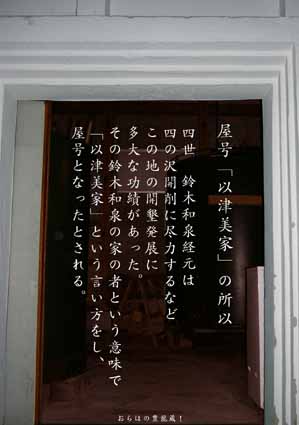 屋号「以津美家」の所以
四世　鈴木和泉経元は
四の沢開削に尽力するなど
この地の開墾発展に
多大な功績があった。
その鈴木和泉の家の者という意味で
「以津美家」という言い方をし、
屋号となったとされる。
おらほの豊龍蔵！